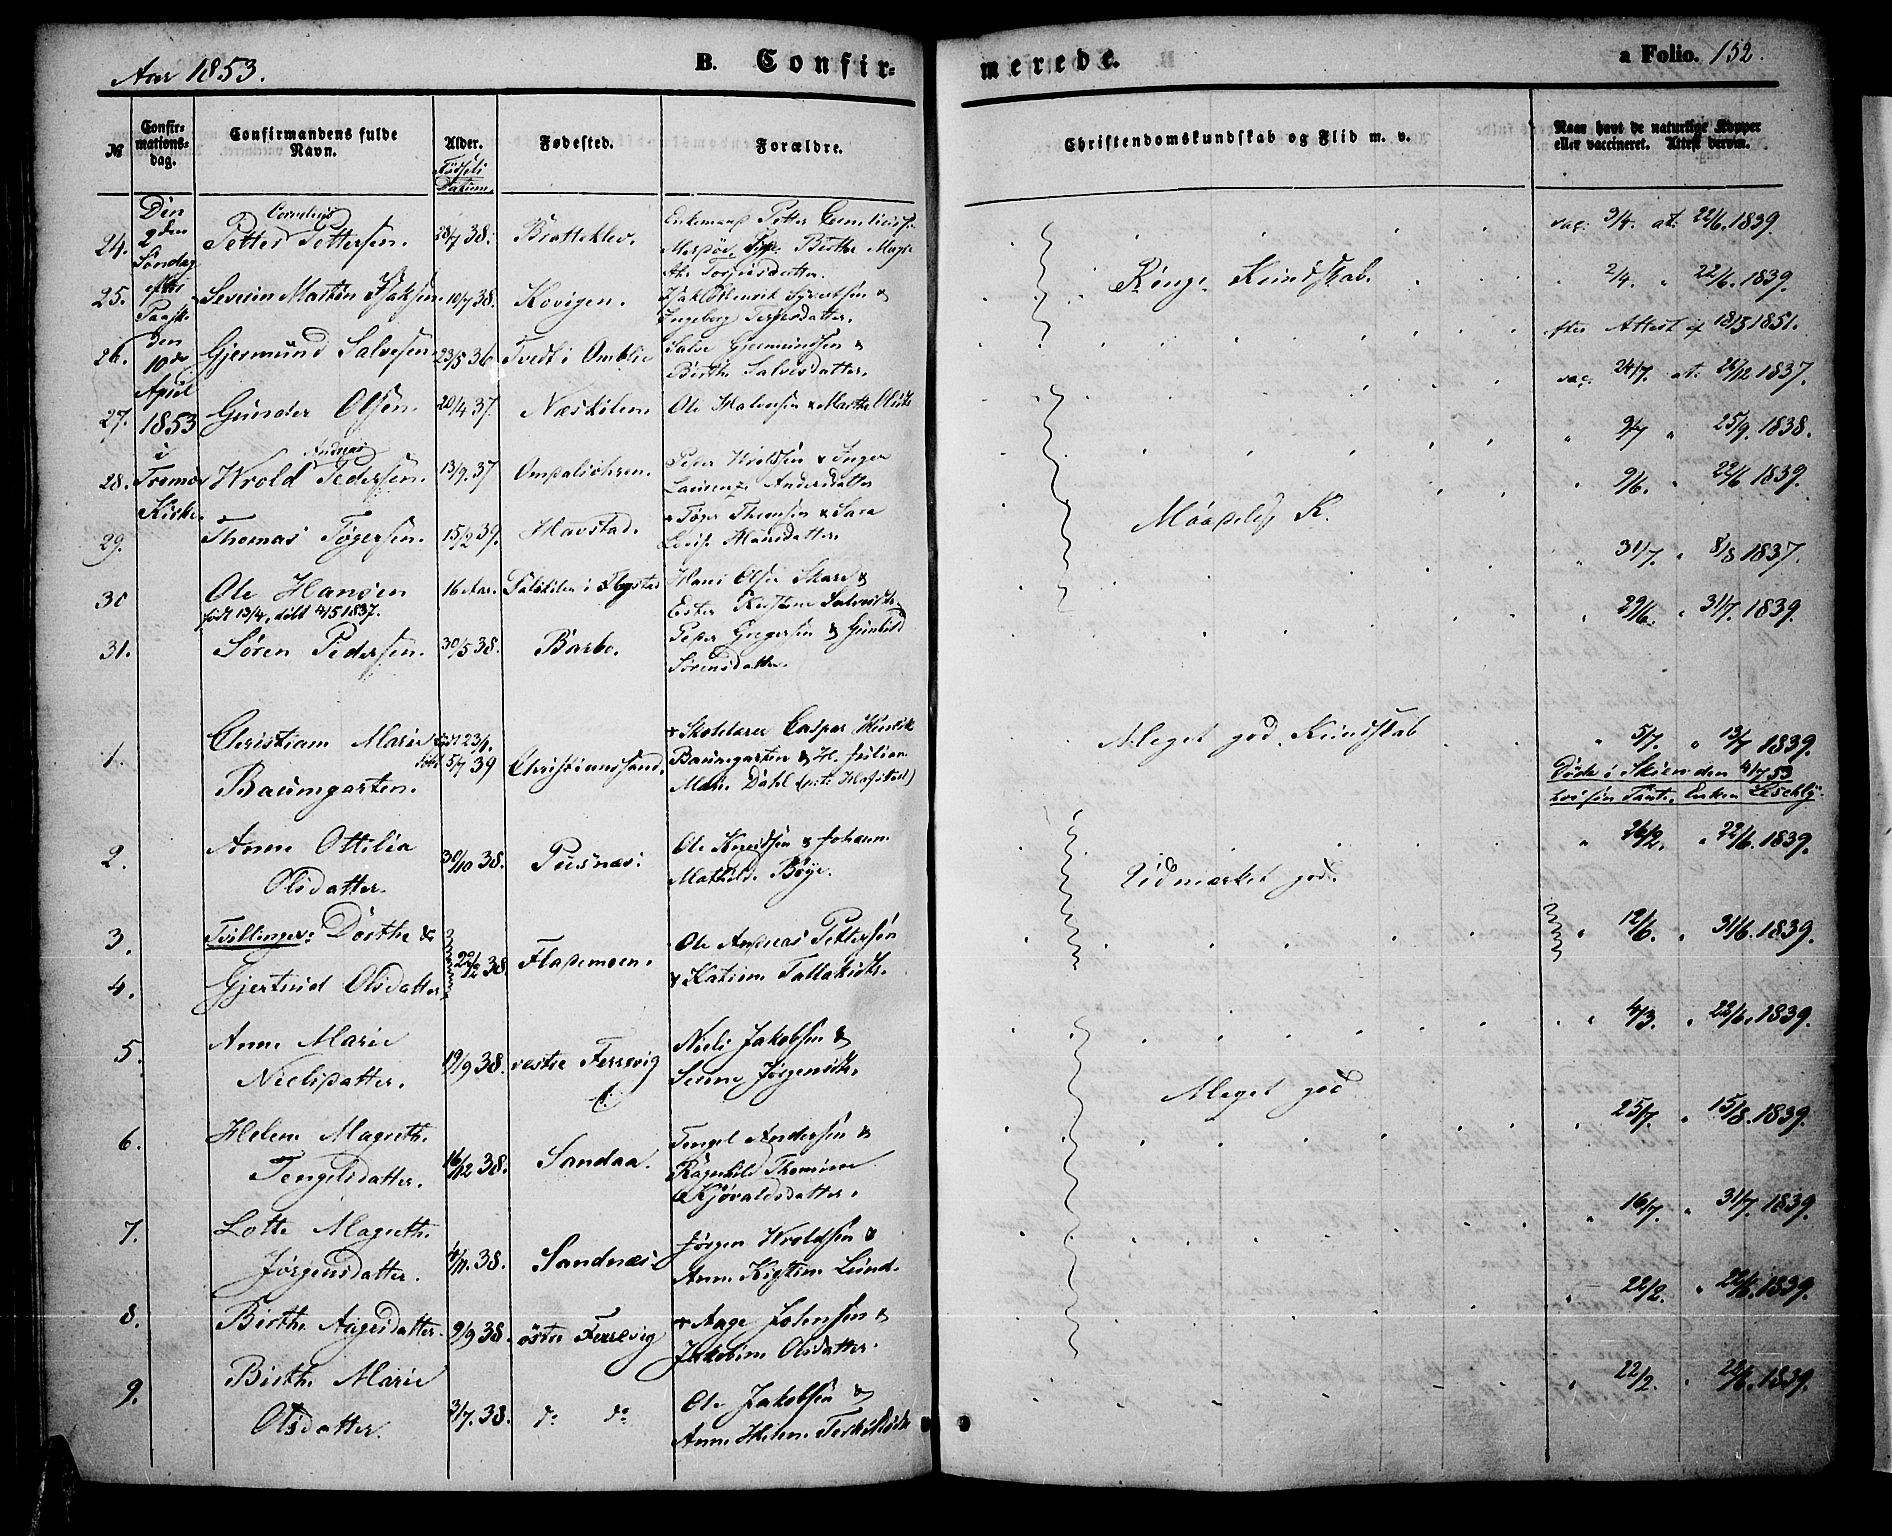 Aar 1853.
B. Confir-
merede.
a Folio. 152.
№
Confir-
mations-
dag.
Confirmandens fulde
Navn.
Alder.
Fødsels
Datum.
Fødested.
Forældre.
Christendomskundskab og Flid m. v.
Naar havt de naturlige Kopper
eller vaccineret. Attest derom.
Den
2den
Søndag
efter
Paaske
den
10de
April
1853
i
Tromø
Kirke.
24. Petter Cornelius Pettersen. 28/7 38. Bratteklev. Enkemand Petter
Birthe
Torjusdatter.
vac. 3/4. at. 22/6. 1839.
25. Severin Martin Isaksen. 10/7 38. Kovigen. Isak Henrik Syvertsen &
Ingeborg Terjesdatter.
Ringe Kundskab.
2/4. " 22/6. 1839.
26. Gjermund Salvesen 23/5 36 Tvedt i Omblie Salve Gjermundsen &
Birthe Salvesdatter.
efter Attest af 18/5 1851.
27. Gunder Olsen. 20/4 37. Næskilen. Ole Halvorsen & Marthe Olsdtr
vac. 24/7. at. 22/12 1837.
28. Wrold Andreas Pedersen. 13/9. 37 Peder Wroldsen & Inger
Laurenze Andersdatter
9/7 " 25/9. 1838.
29. Thomas Tøgersen. 15/2 39. Havstad. Tøger Thomsen & Sara
Lovise Hansdatter.
Maadelig K.
9/6. " 22/6 1839.
30 Ole Hansen 16 Aar. i Flagstad Hans Olsen Skare &
født 13/4, døbt 4/5 1837. Ester Kirstine Salvesdtr.
" 31/7. " 8/8 1837.
31. Søren Pedersen. 30/5 38. Barbo. Peder Gregersen & Gunhild
Sørensdatter.
" 29/6. " 31/7. 1839.
1. Christiane Marie født 23/1. Christianssand. Skolelærer Casper Henrik
Baumgarten. døbt 5/7 39 Baumgarten & H. Juliane
Marie Dahl
Meget god Kundskab
" 5/7. " 13/7 1839.
Døde i Skien den 4/7 53
hos sin Tante, Enken
2. Anne Ottilia 30/10 38. Pusnæs. Ole Knudsen & Johanne
Olsdatter. Mathilde Bøye.
Udmærket god.
" 26/2. " 22/6. 1839.
3. Tvillinger: Dorthe & Ole Andreas Pettersen
4. Gjertrud Olsdatter 22/12 38. Flademoen. & Katrine Tallaksdtr.
" 12/6. " 31/6. 1839.
5. Anne Marie 19/9 38. vestre Færevig Niels Jakobsen &
Nielsdatter. Serine Jørgensdtr.
" 4/3. " 22/6. 1839.
6. Helene Magrethe 16/12 38. Sandaa. Tengel Andersen &
Tengelsdatter. Ragnhild Thomine
Kjøvaldsdatter.
Meget god
" 25/7. " 15/8. 1839.
7. Lotte Magrethe 4/11. 38. Sandnæs. Jørgen Wroldsen &
Jørgensdatter. Anne Kirstine Lund.
" 16/7. " 31/7. 1839.
8. Birthe Aagesdatter. 9/9 38. østre Færevig Aage Jolensen &
Jakobine Olsdatter.
" 22/2. " 22/6. 1839.
9. Birthe Marie 3/7. 38. do do Ole Jakobsen &
Olsdatter. Anne Helene Terkildsdtr
" 22/2. " 22/6. 1839.